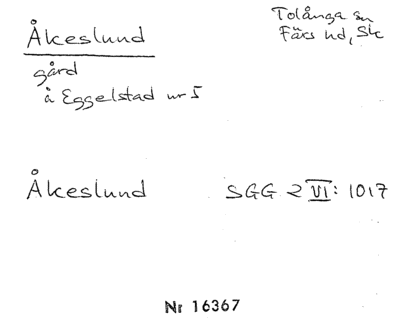 Åkeslund
Tolånga sn
Färs hd, Sk
gård
å Eggelstad nr 5
Åkeslund SGG 2 VI: 1017
Nr 16367